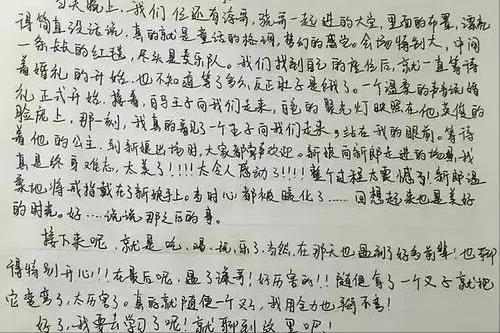 当天晚上，我们位还有海哥，强哥一起进的大堂，里面的布置，漂亮
得简直没话说，真的就是童话的格调，梦幻的感觉。会场特别大，中间
一条长长的红毯，尽头是奏乐队。我们找到自己的座位后，就一直等待
着婚礼的开始，也不知道等了多久，反正肚子是饿了。一个温柔的声音说婚
礼正式开始，接着，白马王子向我们走来，白色的聚光灯映照在他英俊的
脸庞上，那一刻，我真的看见了一个王子向我们走来。站在我的眼前。等待
着他的公主。到新娘出场时，大家都鼓掌欢迎。新娘向新郎走进的场景，我
真是终身难忘，太美了！！！！太令人感动了！！！！整个过程太震憾了！新郎温
柔地将戒指戴在了新娘手上。当时心都被暖化了……回想起来也是美好
的时光。好……说说那之后的事。
接下来呢，就是吃、喝、玩、乐了，当然，在那天也遇到了好多前辈！也聊
得特别开心！！在最后呢，遇了海哥！好厉害的！！随便拿了一个叉子就把
它变弯了，太厉害了。真的就随便一个叉子，我用全力也掰不弯！
好了，我要去学习了呢！就聊到这里吧！